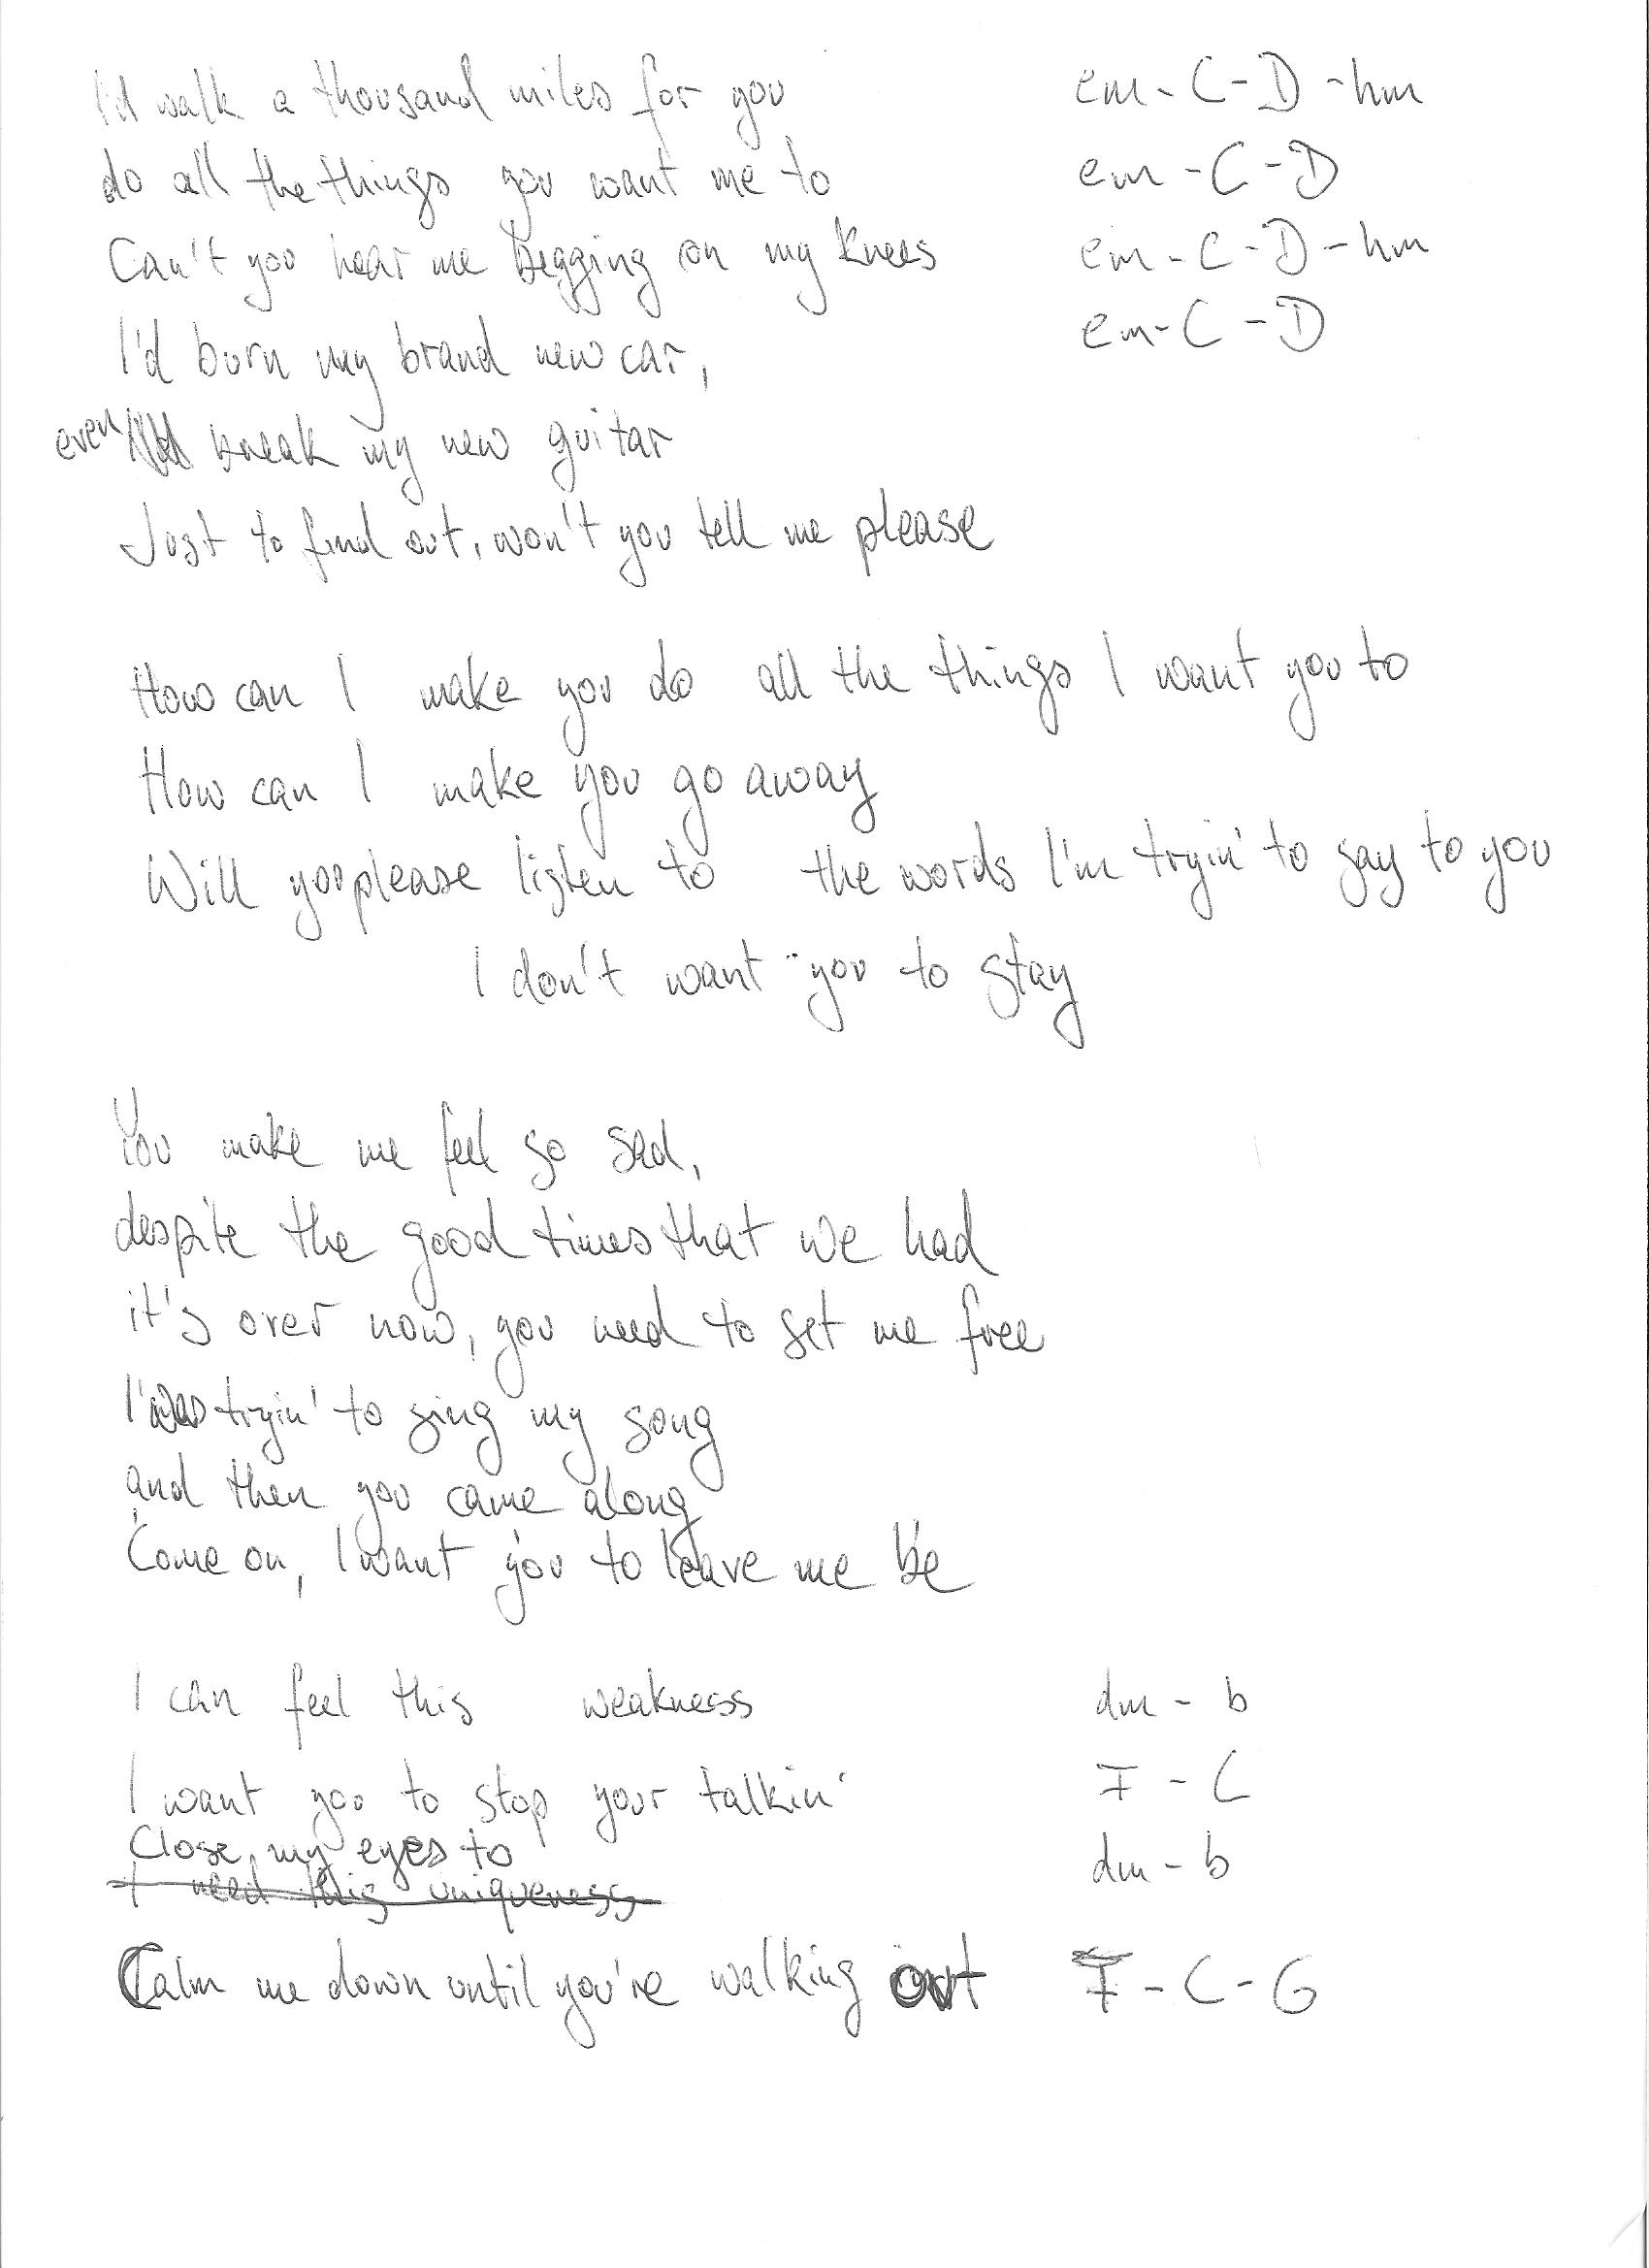 I'd walk a thousand miles for you em - C - D - hm
do all the things you want me to em - C - D
Can't you hear me begging on my knees em - C - D - hm
I'd burn my brand new car, em - C - D
even break my new guitar
Just to find out, won't you tell me please
How can I make you do all the things I want you to
How can I make you go away
Will you please listen to the words I'm tryin' to say to you
I don't want you to stay
You make me feel so sad,
despite the good times that we had
it's over now, you need to set me free
I was tryin' to sing my song
and then you came along
Come on, I want you to leave me be
I can feel this weakness dm - b
I want you to stop your talkin' F - C
Close my eyes to dm - b
I need this uniqueness
Calm me down until you're walking out F - C - G